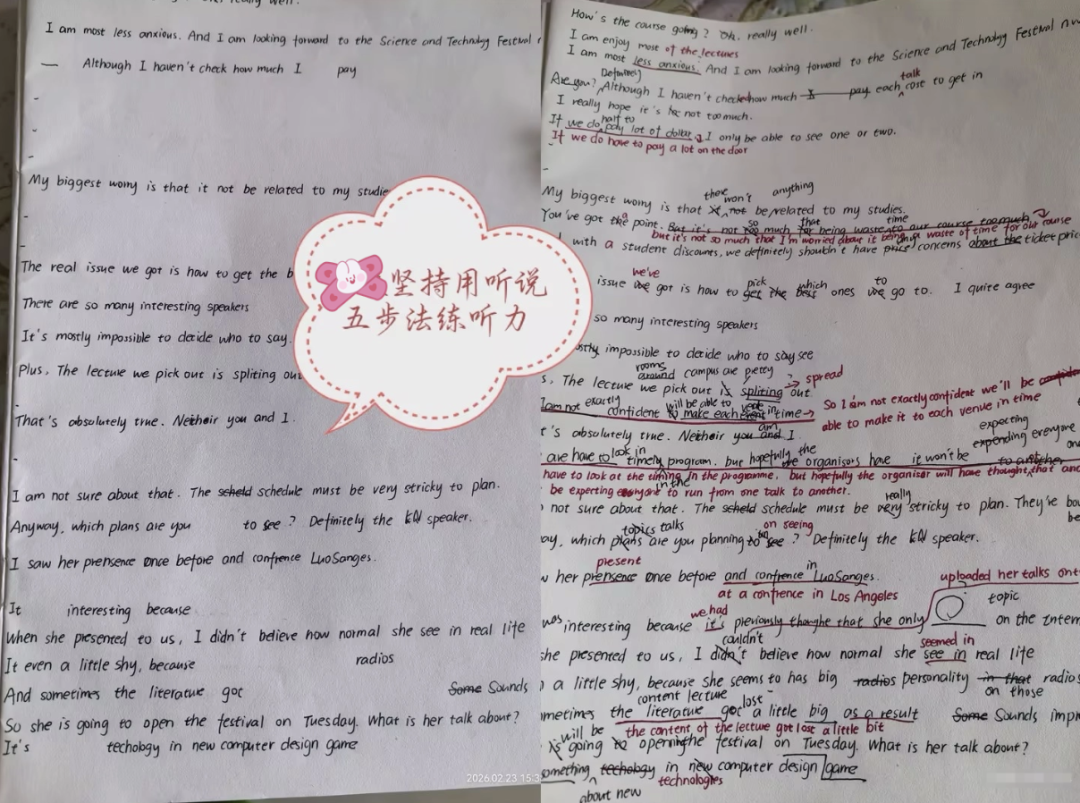 I am most less anxious. And I am looking forward to the Science and Technology Festival
— Although I haven't check how much I pay
My biggest worry is that it not be related to my studie
The real issue we got is how to get the b
There are so many interesting speakers
It's mostly impossible to decide who to say.
Plus. The lecture we pick out is spliting out
That's absolutely true. Neither you and I.
I am not sure about that. The scheld schedule must be very stricky to plan.
Anyway, which plans are you to see? Definitely the speaker.
I saw her prensence once before and confrence LuoSanges.
It interesting because
When she presented to us, I didn't believe how normal she see in real life
It even a little shy, because radios
And sometimes the literature got Some Sounds
So she is going to open the festival on Tuesday. What is her talk about?
It's techobgy in new computer design game
坚持用听说
五步法练听力
2026.02.23 15:3
How's the course going? Oh. really well.
I am enjoy most of the lectures
I am most less anxious. And I am looking forward to the Science and Technology Festival
Definitely talk
Are you? Although I haven't check how much I pay each cost to get in
I really hope it's not too much.
half to
If we do pay lot of dollar I only be able to see one or two.
If we do have to pay a lot on the door
there won't anything
My biggest worry is that not be related to my studies.
so that time
You've got the a point. But it's not too much for being waste to our course too much
but it's not so much that I'm worried about it being a waste of time for our course
with a student discounts, we definitely shouldn't have price concerns about the ticket price
we've pick which to
issue we got is how to get the best ones we go to. I quite agree
so many interesting speakers
ostly impossible to decide who to say see
rooms
around campus are pretty
s. The lecture we pick out is spliting out. spread
I am not exactly confident will be able to make each vent in time
So I am not exactly confident we'll be
able to make it to each venue in time
am
t's absolutely true. Neither you and I
expecting
look in the expending everyone
are have to timely program. but hopefully the organisors have it won't be to another
have to look at the timing in the programme, but hopefully the organisor will have thought that and
be expecting to run from one talk to another.
really
not sure about that. The scheld schedule must be very stricky to plan. They're
topics talks on seeing
ay, which plans are you planning to see? Definitely the speaker.
present in
w her prensence once before and confrence LuoSanges.
at a confrence in Los Angeles
uploaded her talks
topic
we had
was interesting because it's previously thoughe that she only on the Intern
couldn't seemed in
she presented to us, I didn't believe how normal she see in real life
a little shy, because she seems to has big radios personality in that radios
on those
content lectute lost
metimes the literature got a little big as a result Some Sounds impr
the content of the lecture got lose a little bit
will be
is going to opening the festival on Tuesday. What is her talk about?
something techobgy in new computer design game
about new technologies